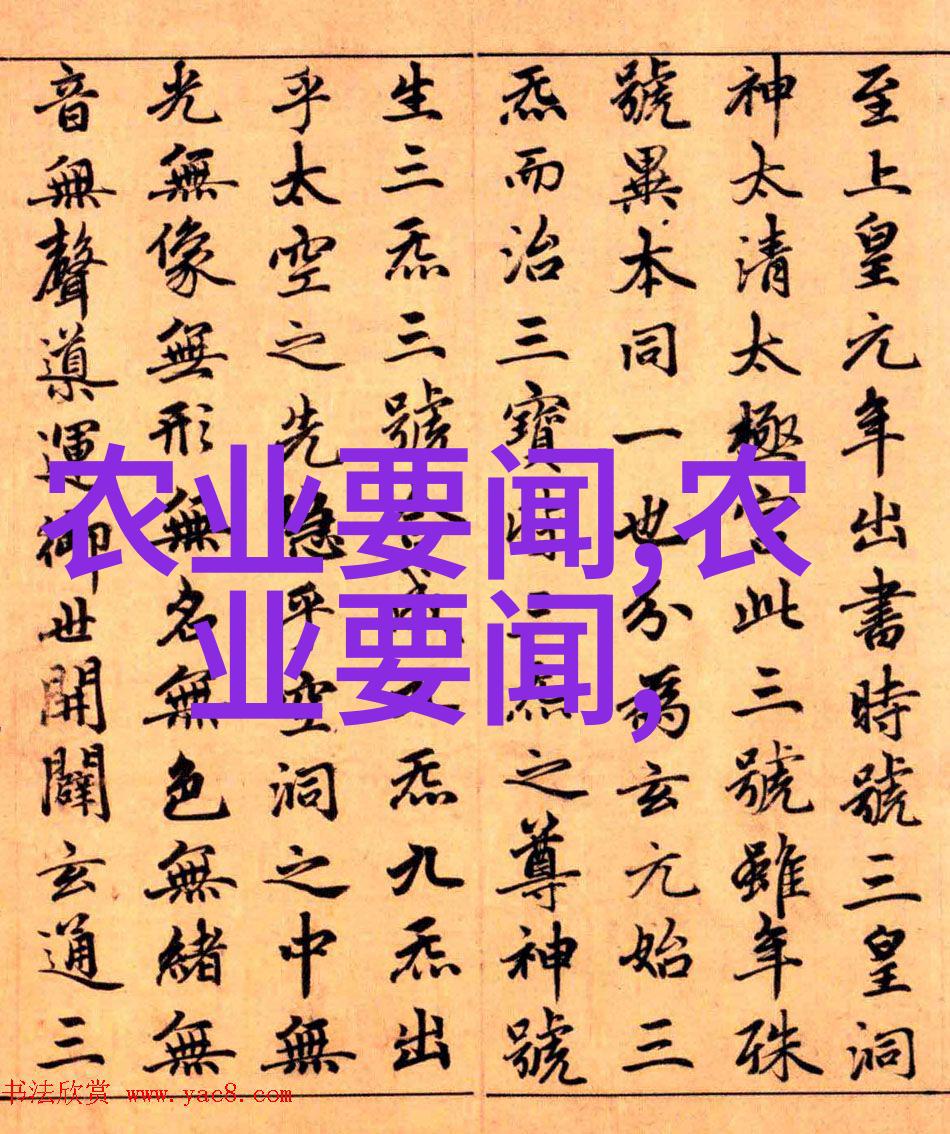 至上皇元年出書時號三皇洞
神太清太極宮此三號雖年殊
號異本同一也分爲玄元始三
炁而治三寶皆三炁之尊神號
生三炁三號合成九炁九炁出
乎太空之先隱乎空洞之中無
光無像無形無名無色無緒無
音無聲導運御世開闢玄通三
农业要闻,农
业要闻,
书法欣赏 www.yac8.com